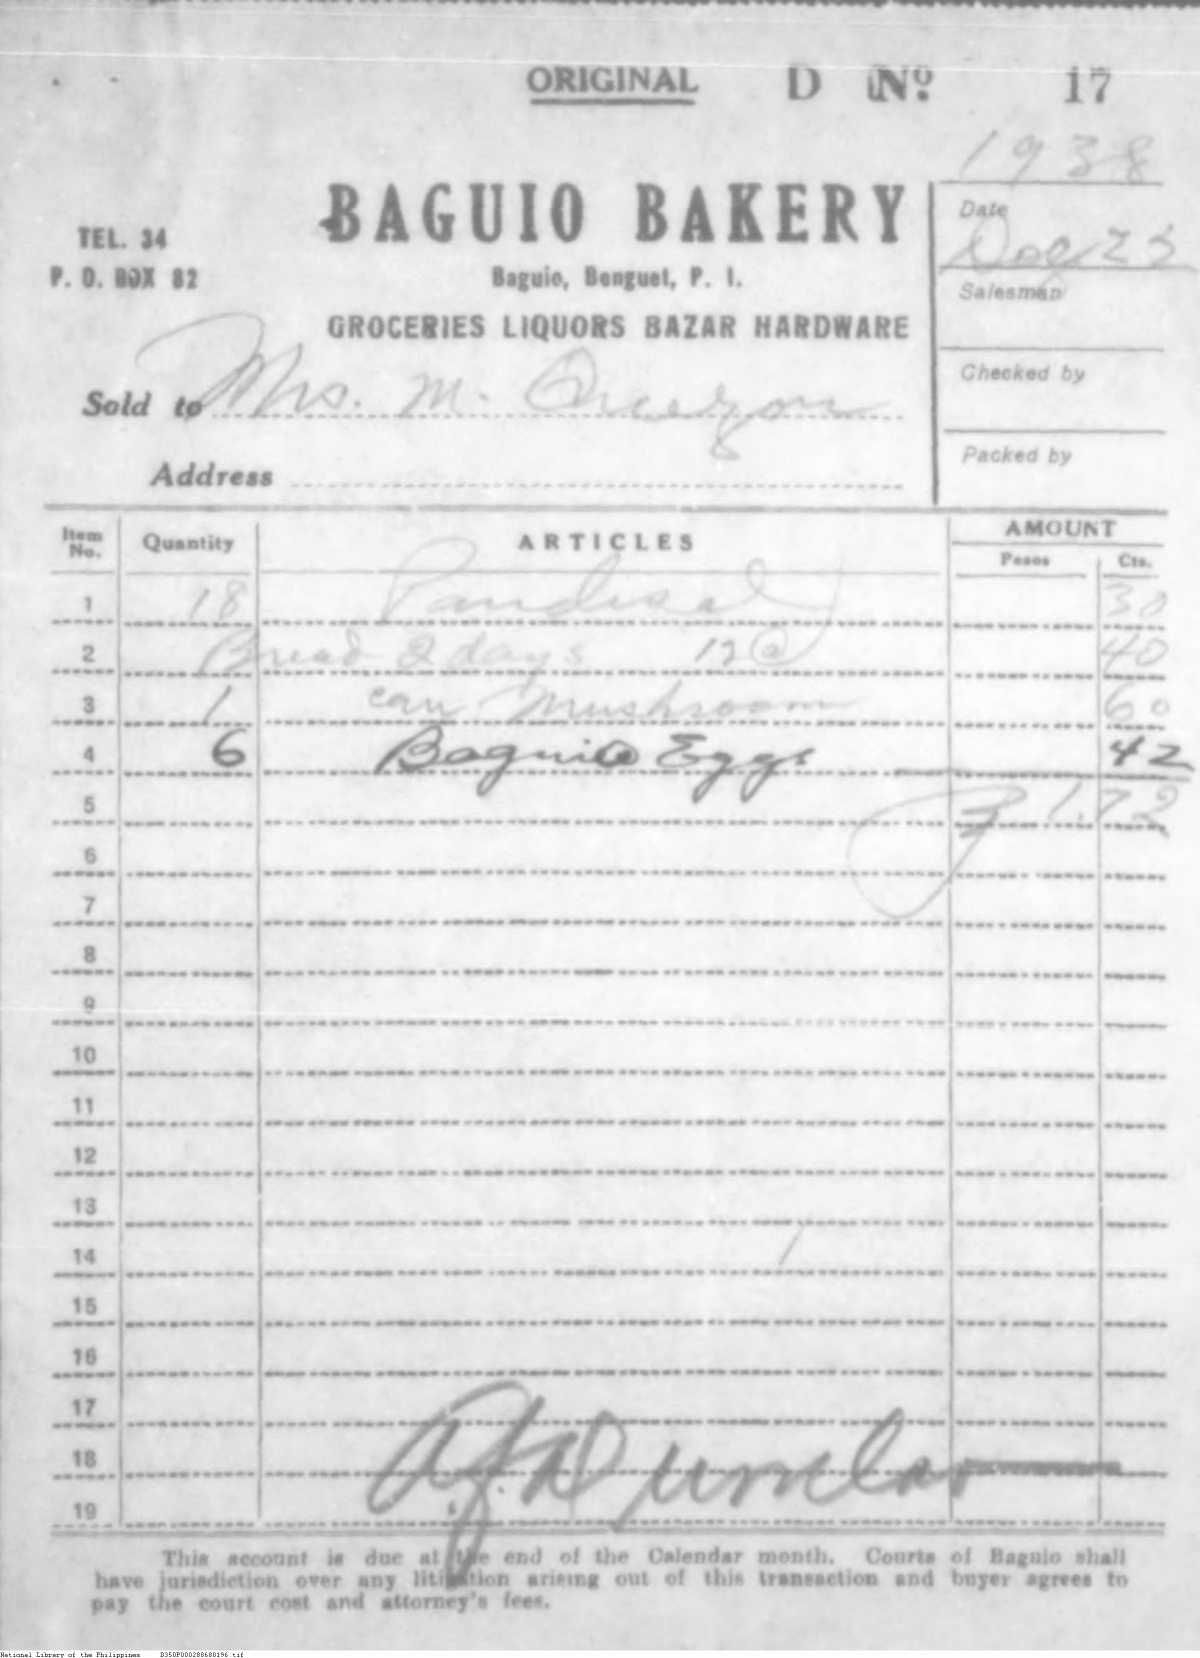 ORIGINAL D No. 17
1938
BAGUIO BAKERY
Date
TEL. 34
Dec 23
P. O. BOX 82
Baguio, Benguet, P. I.
Salesman
GROCERIES LIQUORS BAZAR HARDWARE
Sold to Mrs. M. Quezon
Checked by
Packed by
Address
Item No. Quantity ARTICLES AMOUNT
Pesos Cts.
1 18 Pandesal 30
2 Bread 2 days @ 40
3 1 can Mushroom 60
4 6 Baguio Eggs 42
5 ₱ 1.72
6
7
8
9
10
11
12
13
14
15
16
17
18
19
This account is due at the end of the Calendar month. Courts of Baguio shall
have jurisdiction over any litigation arising out of this transaction and buyer agrees to
pay the court cost and attorney's fees.
National Library of the Philippines D350P000288680196.tif